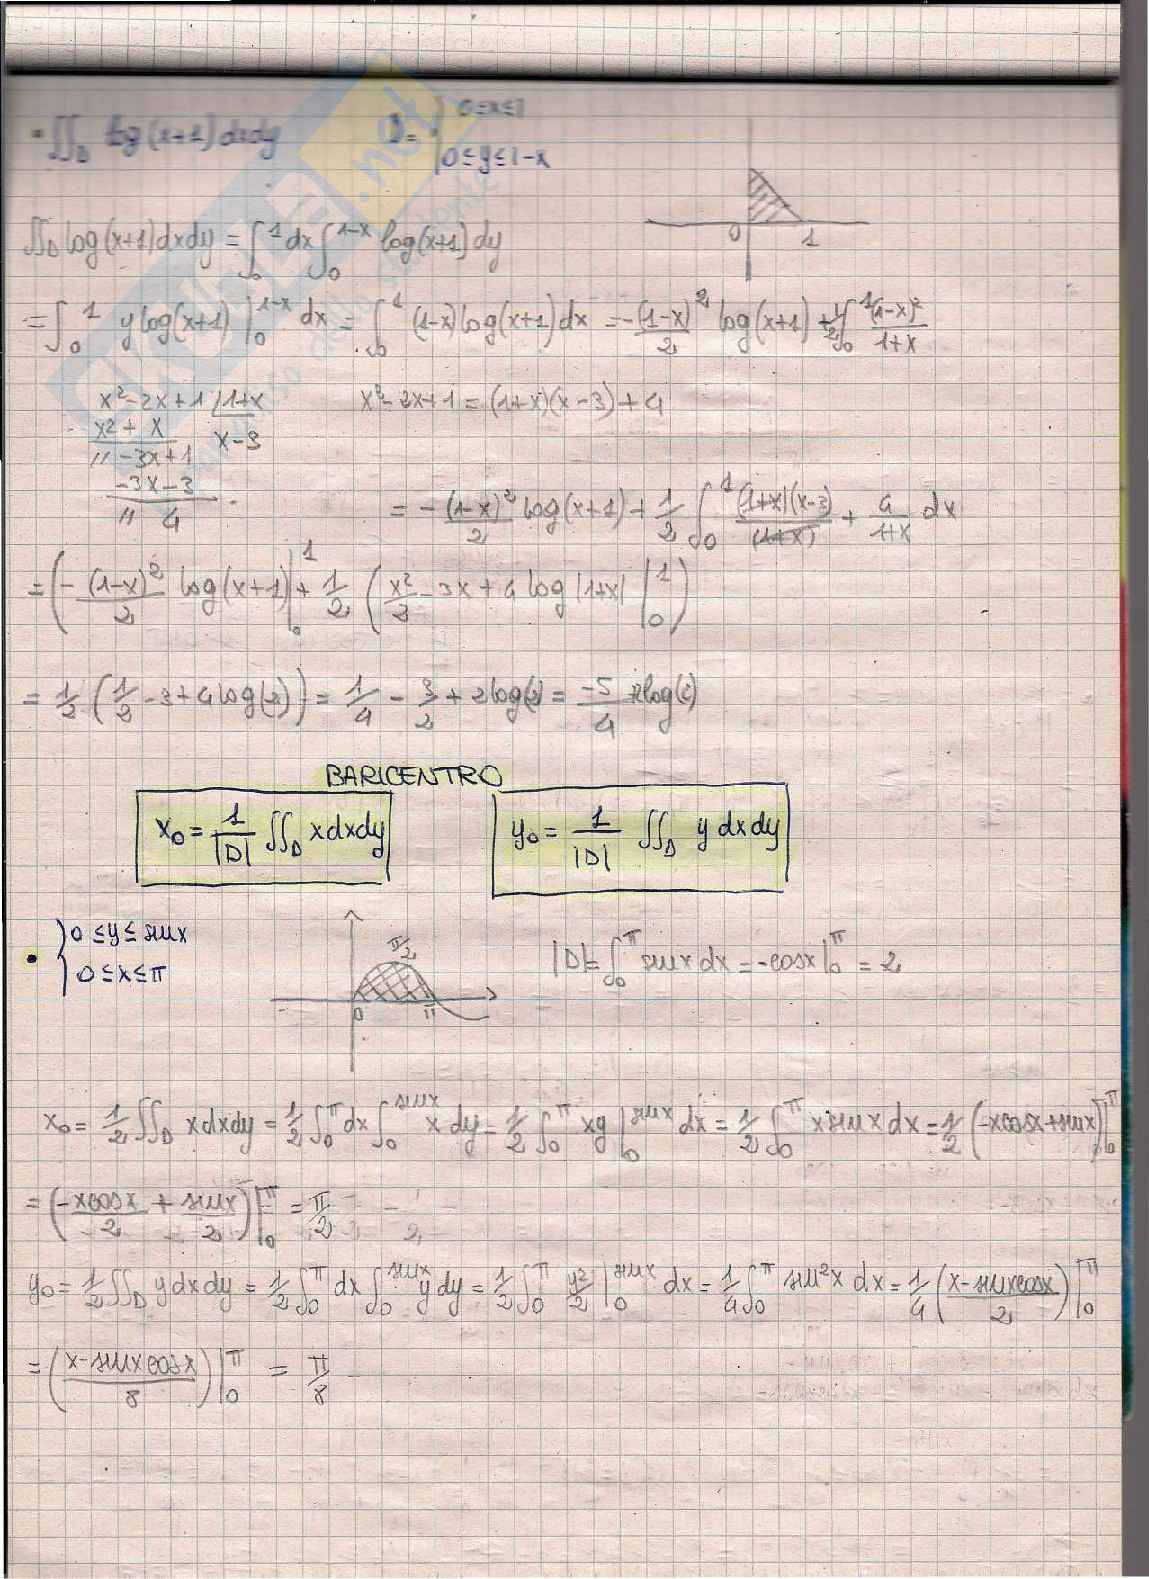 • ∬_D log(x+1) dxdy   D = { 0≤x≤1
0≤y≤1-x
∬_D log(x+1)dxdy = ∫_0^1 dx ∫_0^{1-x} log(x+1) dy
0 1
= ∫_0^1 y log(x+1) |_0^{1-x} dx = ∫_0^1 (1-x) log(x+1) dx = -(1-x)^2/2 log(x+1) + 1/2 ∫_0^1 (1-x)^2/(1+x)
x²-2x+1 | 1+x   x²-2x+1 = (1+x)(x-3)+4
x²+x   x-3
// -3x+1
-3x-3
// 4
= -(1-x)^2/2 log(x+1) + 1/2 ∫_0^1 (1+x)(x-3)/(1+x) + 4/(1+x) dx
= (-(1-x)^2/2 log(x+1) |_0^1 + 1/2 (x²/2 -3x + 4 log|1+x| |_0^1)
= 1/2 (1/2 -3 + 4log(2)) = 1/4 - 3/2 + 2log(2) = -5/4 + 2log(2)
BARICENTRO
x_0 = 1/|D| ∬_D x dxdy   y_0 = 1/|D| ∬_D y dxdy
• { 0≤y≤sinx
0≤x≤π
π/2
0 π
|D| = ∫_0^π sinx dx = -cosx |_0^π = 2
x_0 = 1/2 ∬_D x dxdy = 1/2 ∫_0^π dx ∫_0^{sinx} x dy = 1/2 ∫_0^π xy |_0^{sinx} dx = 1/2 ∫_0^π x sinx dx = 1/2 (-xcosx+sinx) |_0^π
= (-xcosx/2 + sinx/2) |_0^π = π/2
y_0 = 1/2 ∬_D y dxdy = 1/2 ∫_0^π dx ∫_0^{sinx} y dy = 1/2 ∫_0^π y²/2 |_0^{sinx} dx = 1/4 ∫_0^π sin²x dx = 1/4 ((x-sinxcosx)/2) |_0^π
= ((x-sinxcosx)/8) |_0^π = π/8